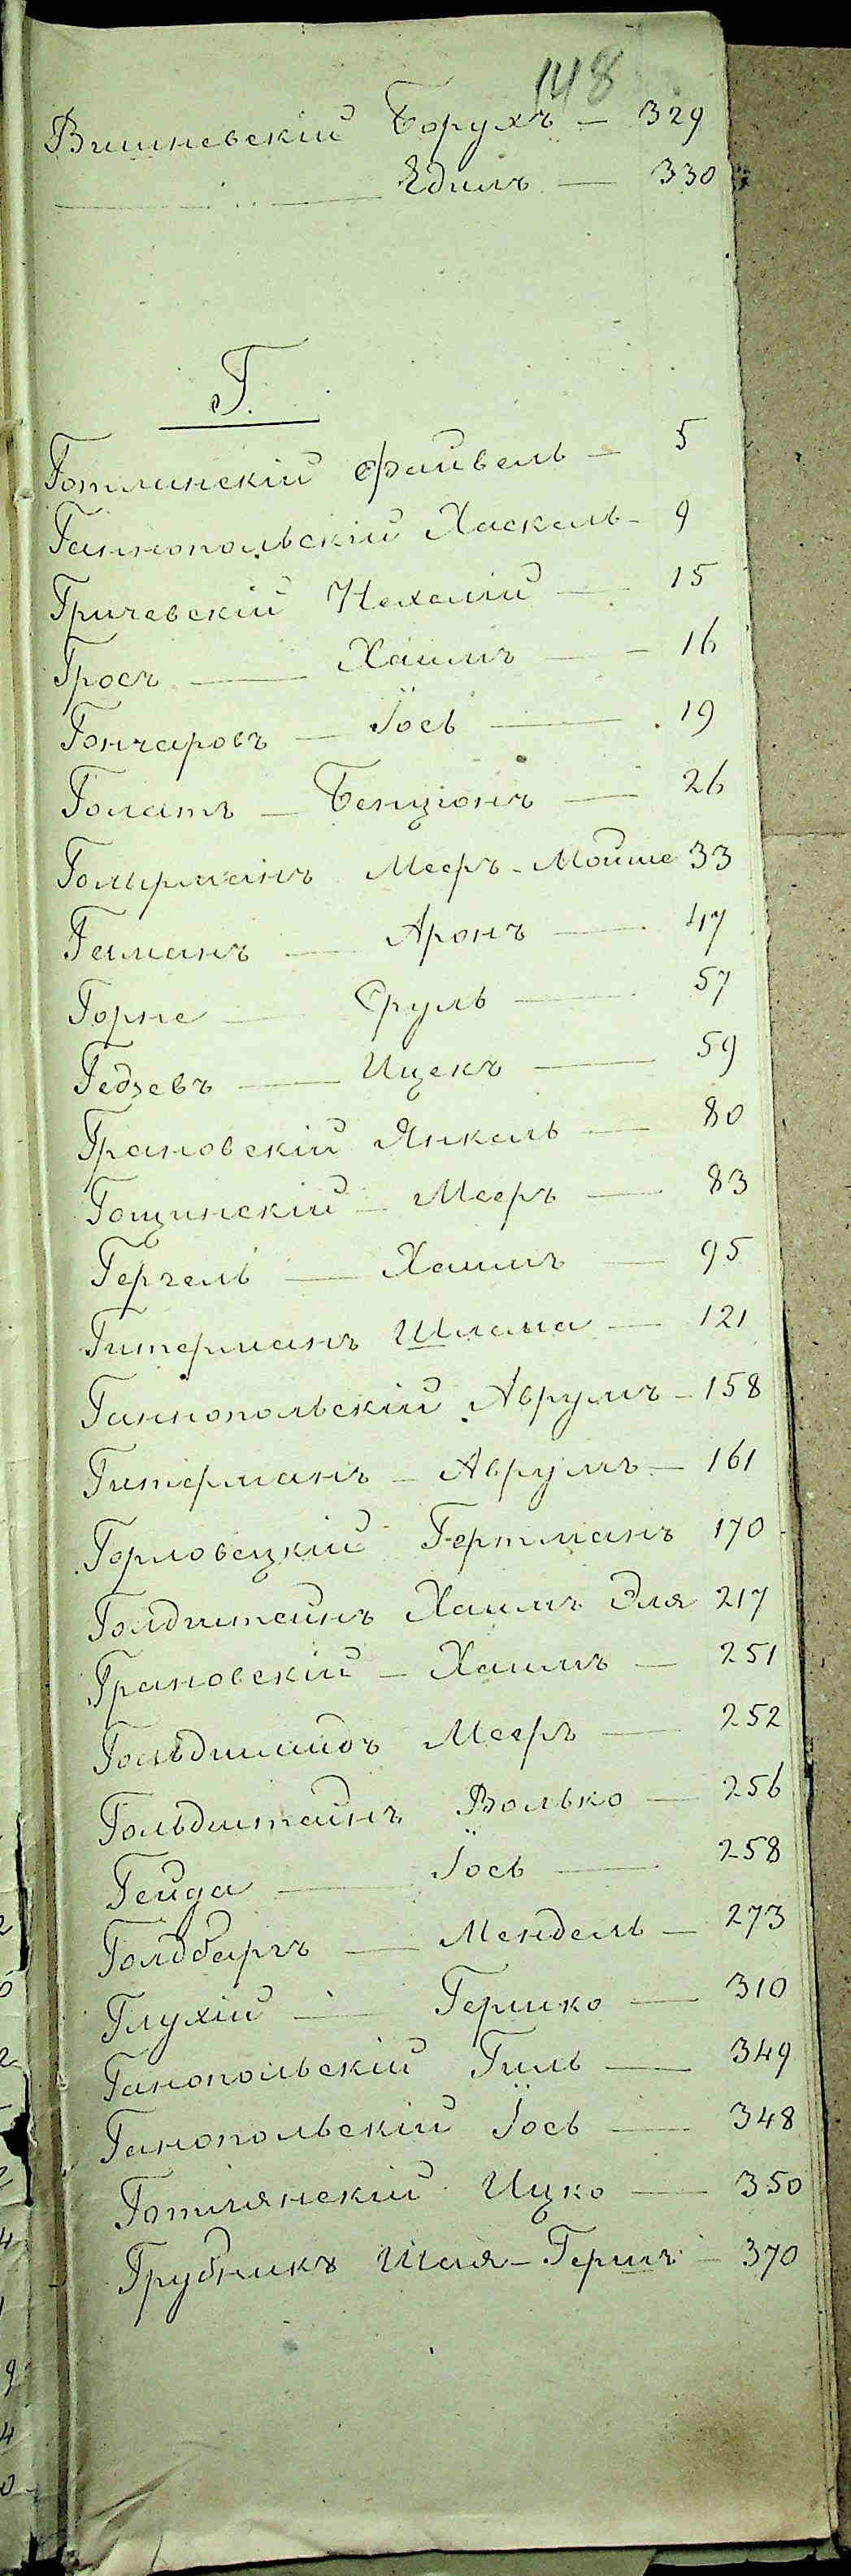 148
Вишневскій Борухъ — 329
— „ — Едилъ — 330
Г.
Готлинскій Файвель — 5
Ганнопольскій Хаскель — 9
Гричевскій Нехемій — 15
Гросъ — Хаимъ — 16
Гончаровъ — Іось — 19
Голатъ — Бенціонъ — 26
Мееръ - Мойше 33
Гегманъ — Аронъ — 47
Горне — Сруль — 57
Гедзевъ — Ицекъ — 59
Грановскій Янкель — 80
Гощинскій — Мееръ — 83
Гергель — Хаимъ — 95
Гитерманъ Шлема — 121
Ганнопольскій Аврумъ — 158
Гитерманъ — Аврумъ — 161
Горловецкій Гертманъ 170
Голдштейнъ Хаимъ Эля 217
Грановскій — Хаимъ — 251
Гольдшмидъ Мееръ — 252
Гольдштейнъ Волько — 256
Гейда — Іось — 258
Голдбергъ — Мендель — 273
Глухій — Гершко — 310
Ганопольскій Гиль — 349
Ганопольскій Іось — 348
Готлянскій Ицко — 350
Грубникъ Шая - Гершъ — 370